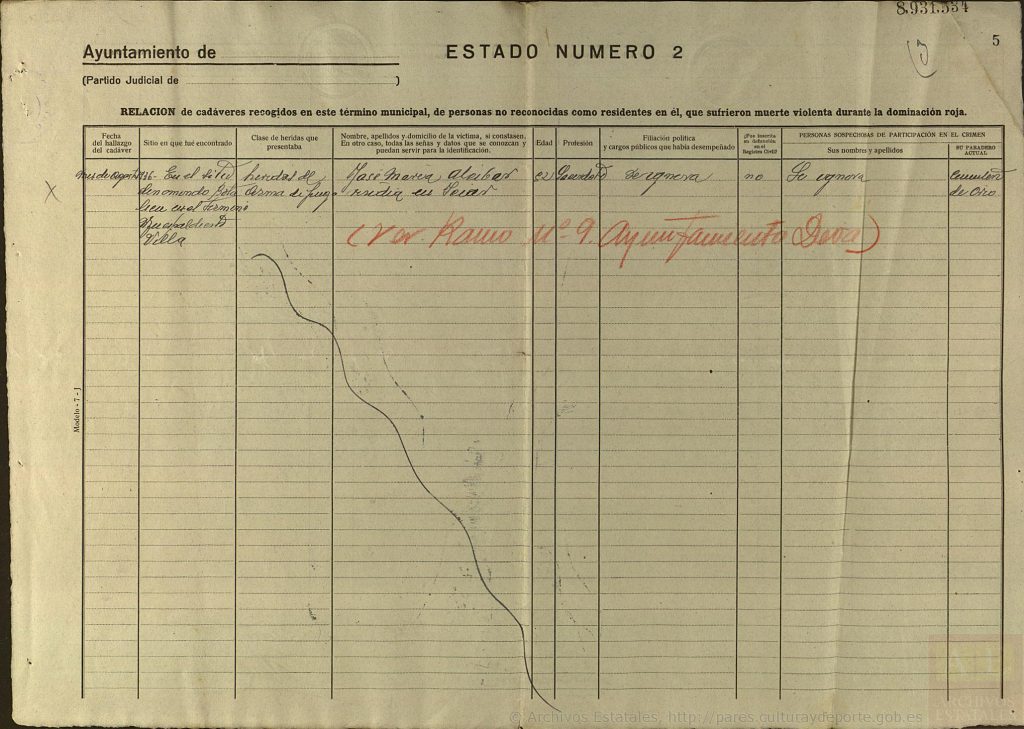 8.931.534
5
Ayuntamiento de
ESTADO NUMERO 2
(Partido Judicial de )
RELACION de cadáveres recogidos en este término municipal, de personas no reconocidas como residentes en él, que sufrieron muerte violenta durante la dominación roja.
Fecha del hallazgo del cadáver
Sitio en que fué encontrado
Clase de heridas que presentaba
Nombre, apellidos y domicilio de la víctima, si constasen. En otro caso, todas las señas y datos que se conozcan y puedan servir para la identificación.
Edad
Profesión
Filiación política y cargos públicos que había desempeñado
¿Fué inscrita su defunción en el Registro Civil?
PERSONAS SOSPECHOSAS DE PARTICIPACIÓN EN EL CRIMEN
Sus nombres y apellidos
SU PARADERO ACTUAL
En el sitio
heridas de
José Maria
52
se ignora
no
Se ignora
denominado
Arma de fuego
residia en
en el termino
Villa
(Ver Ramo Nº 9. Ayuntamiento Deva)
Modelo - 7 - J
© Archivos Estatales, http://pares.culturaydeporte.gob.es